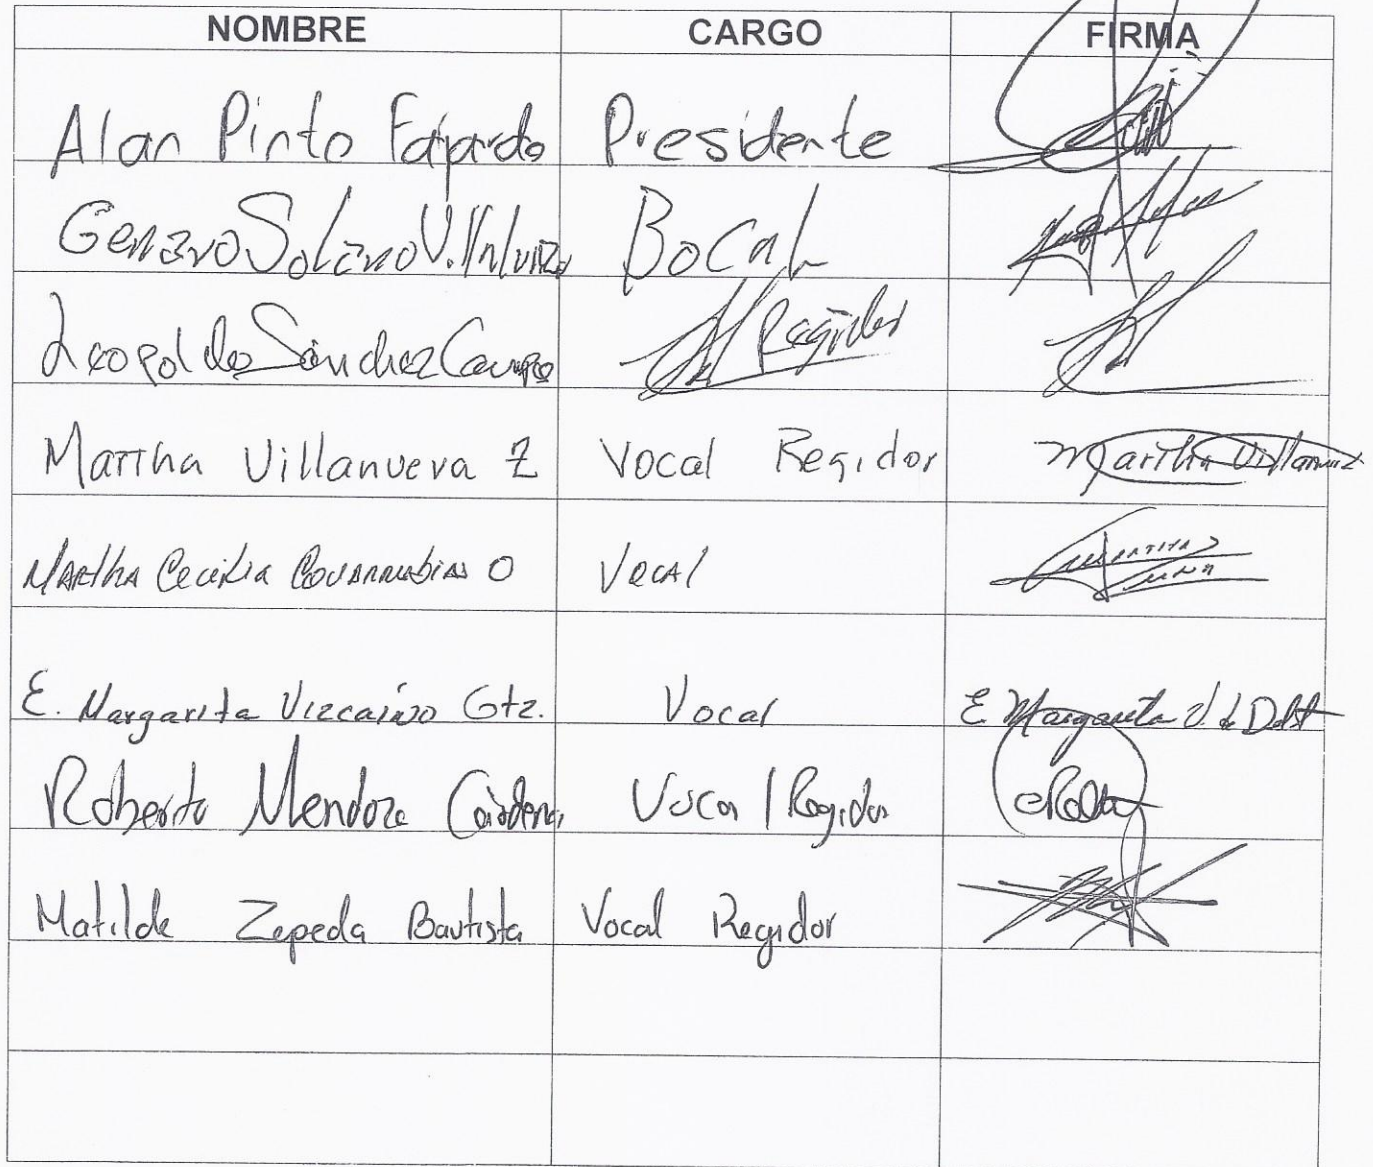 NOMBRE CARGO FIRMA
Alan Pinto Fajardo Presidente
Genaro Solano Bocal
Leopoldo Sánchez Campo Regidor
Martha Villanueva Z Vocal Regidor Martha Villanueva Z
Martha Cecilia Covarrubias O Vocal
E. Margarita Vizcaino Gtz. Vocal E Margarita V. de
Roberto Mendoza Cárdenas Vocal Regidor
Matilde Zepeda Bautista Vocal Regidor